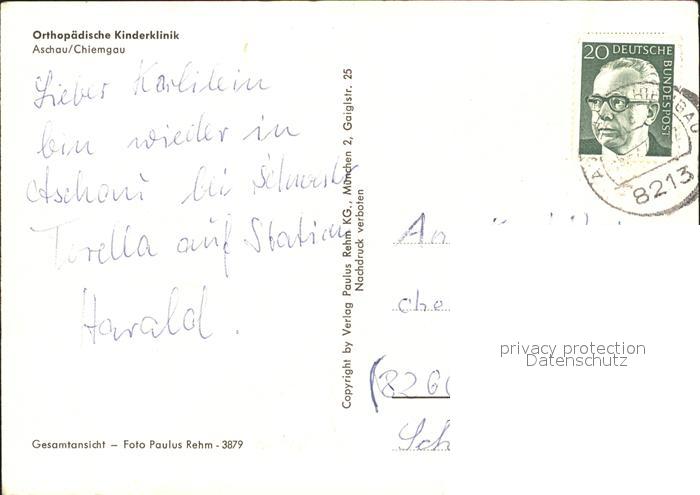 Orthopädische Kinderklinik
Aschau/Chiemgau
Lieber Karlilein
bin wieder in
Aschau bei Schwester
Torella auf Station
Harald.
Gesamtansicht – Foto Paulus Rehm - 3879
Copyright by Verlag Paulus Rehm KG., München 2, Gaiglstr. 25
Nachdruck verboten
20 DEUTSCHE
BUNDESPOST
8213
An
(826
Sch
privacy protection
Datenschutz